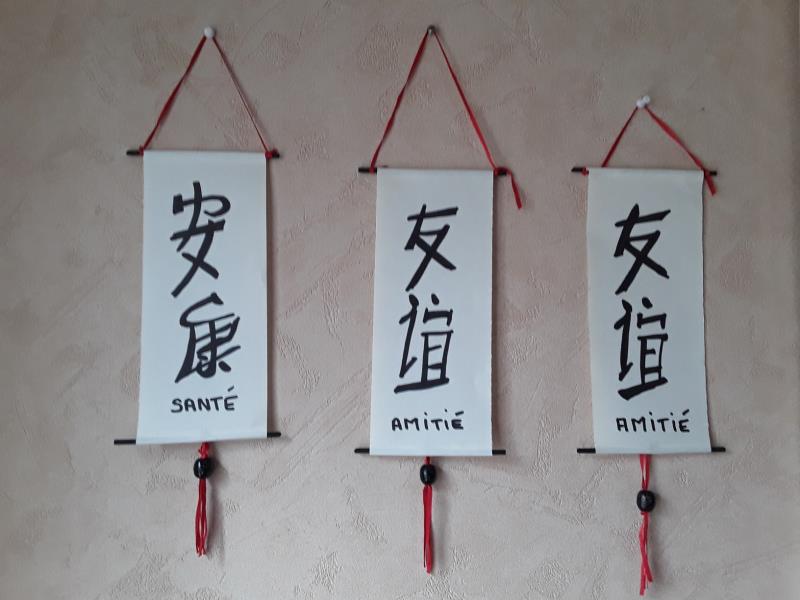 安
康
SANTÉ
友
谊
AMiTiÉ
友
谊
AMiTiÉ